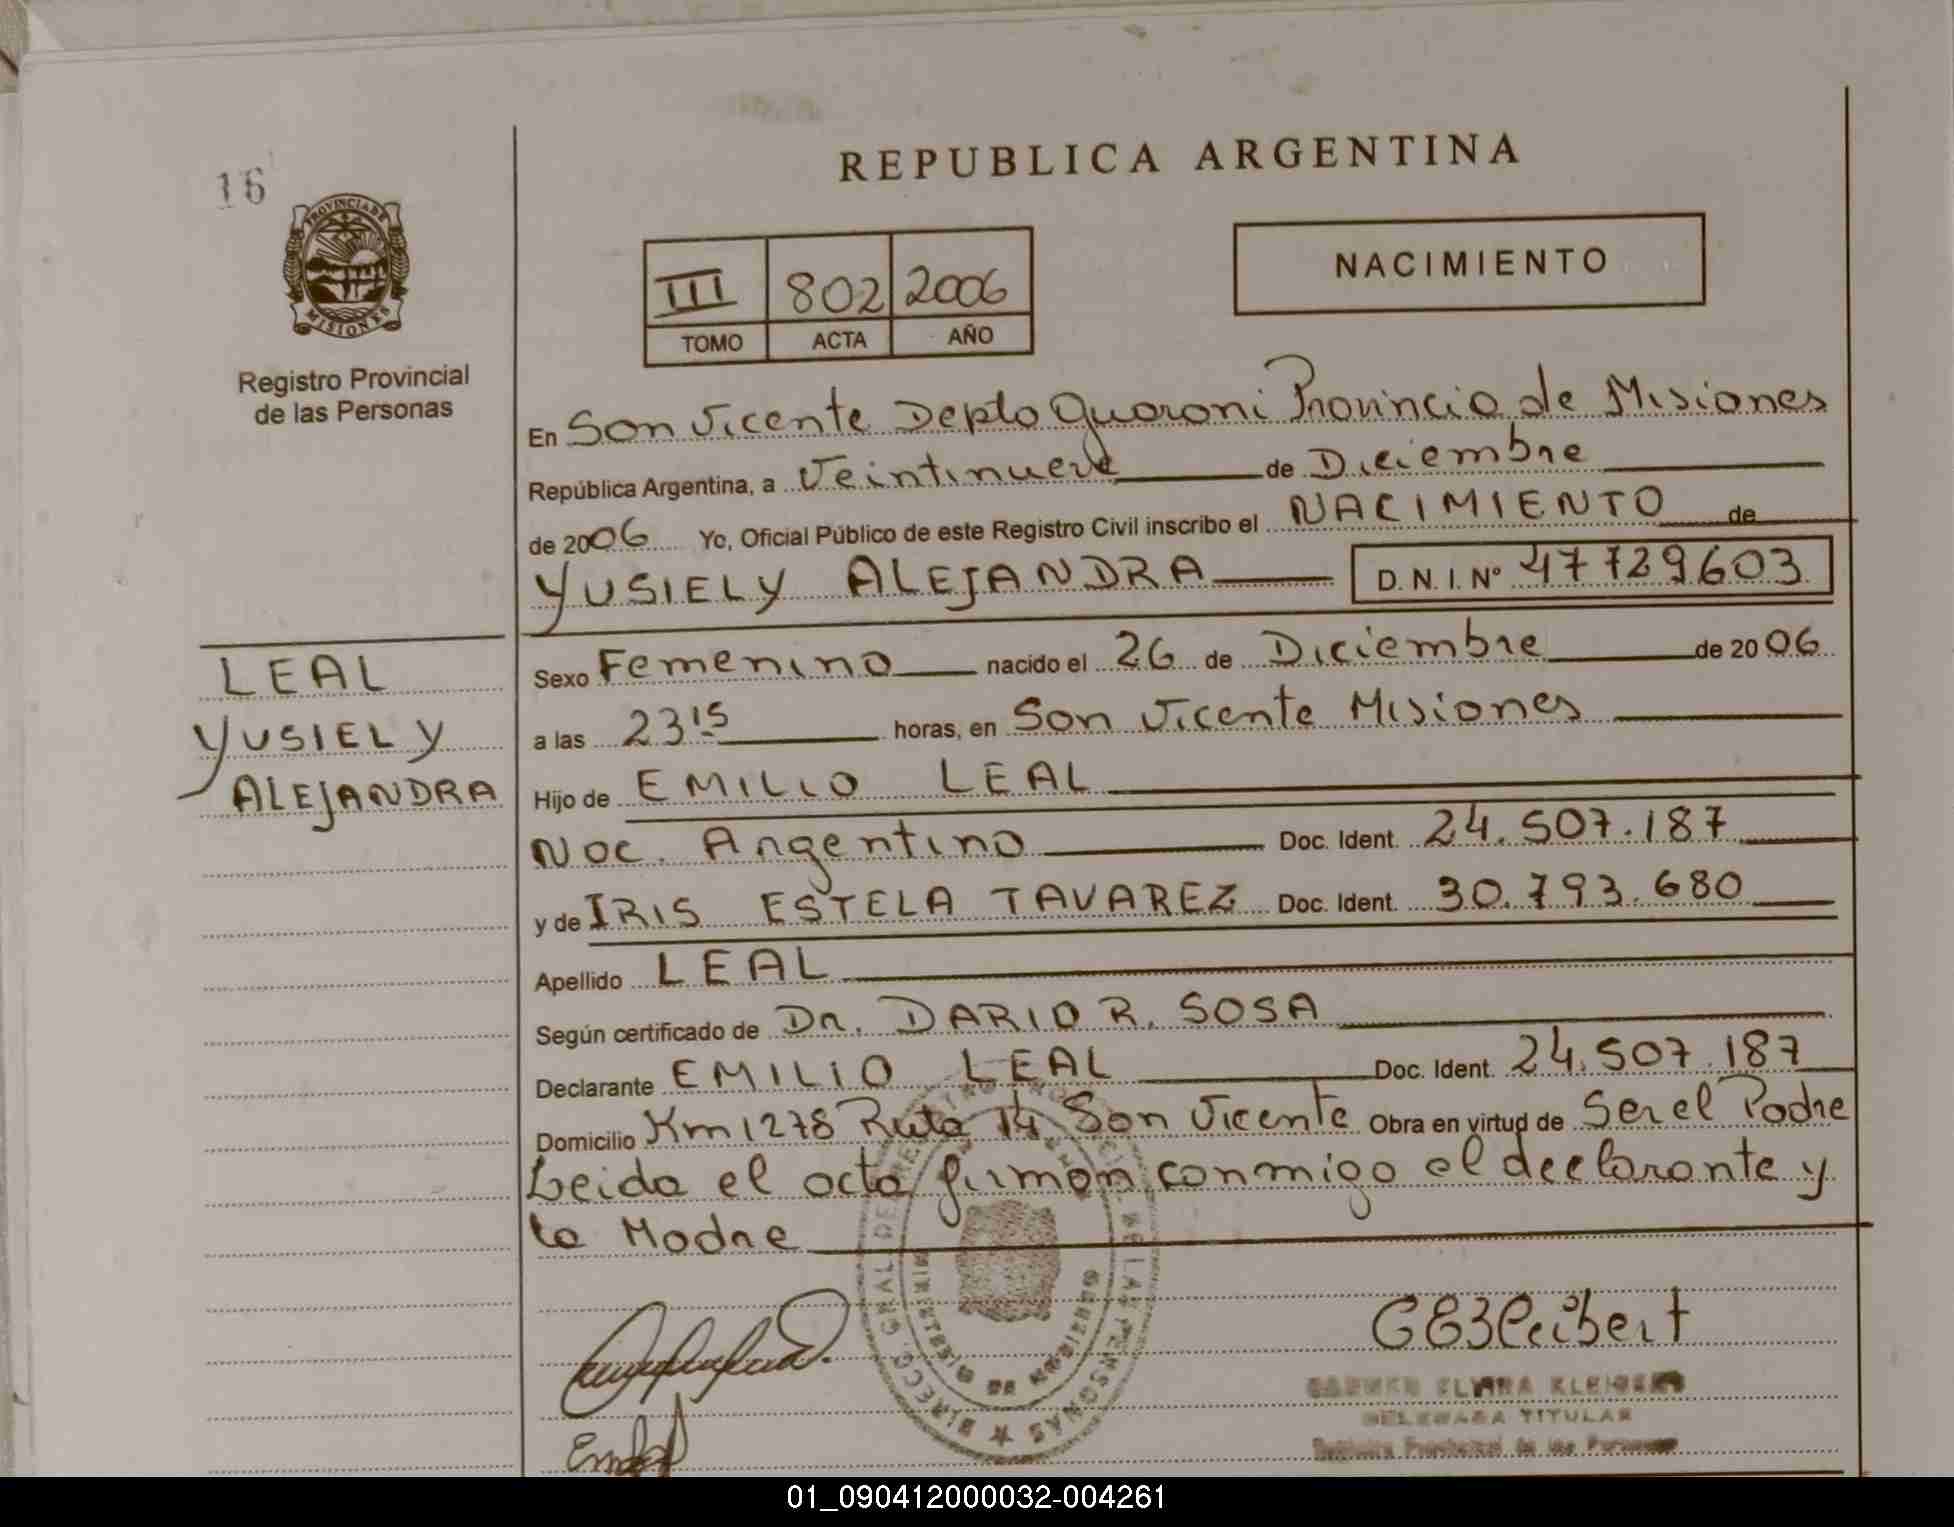 16
REPUBLICA ARGENTINA
PROVINCIA DE
MISIONES
Registro Provincial
de las Personas
III 802 2006
TOMO ACTA AÑO
NACIMIENTO
En San Vicente Depto Guarani Provincia de Misiones
República Argentina, a Veintinueve de Diciembre
de 2006 Yo, Oficial Público de este Registro Civil inscribo el NACIMIENTO de
YUSIELY ALEJANDRA D.N.I. Nº 47729603
LEAL
YUSIELY
ALEJANDRA
Sexo Femenino nacido el 26 de Diciembre de 2006
a las 23 15 horas, en San Vicente Misiones
Hijo de EMILIO LEAL
Nac. Argentino Doc. Ident. 24.507.187
y de IRIS ESTELA TAVAREZ Doc. Ident. 30.793.680
Apellido LEAL
Según certificado de Dr. DARIO R. SOSA
Declarante EMILIO LEAL Doc. Ident. 24.507.187
Domicilio Km 1278 Ruta 14 San Vicente Obra en virtud de Ser el Padre
Leida el acta firman conmigo el declarante y
la Madre
DELEGADA TITULAR
Registro Provincial de las Personas
01_090412000032-004261